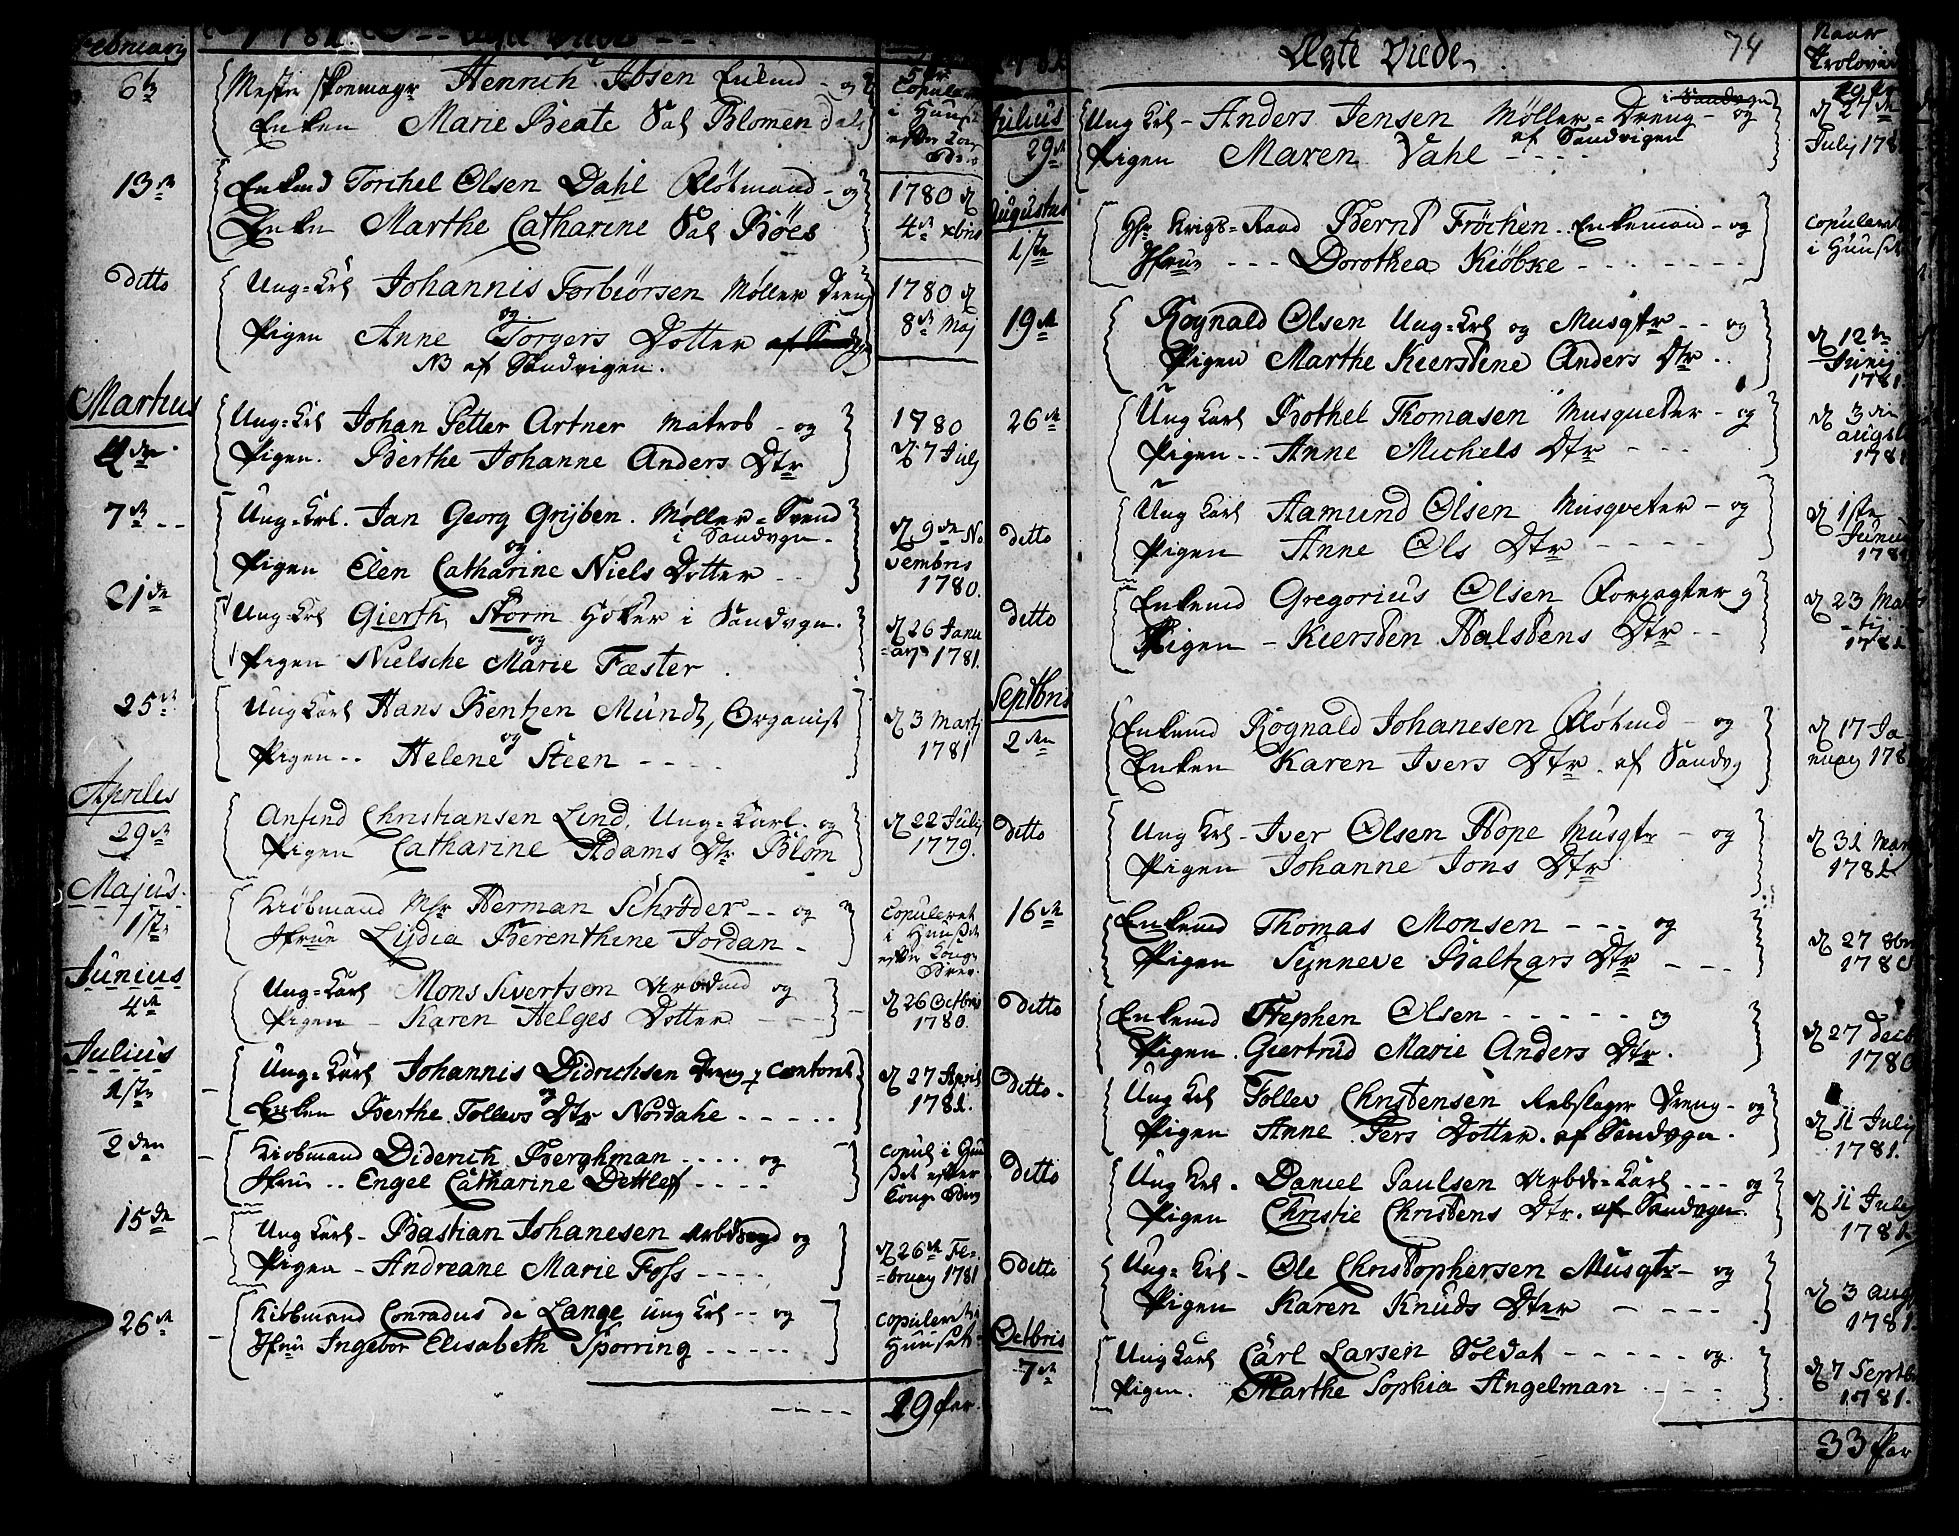 February
1781
6te
Mester Skoemagr Henrich Ibsen Enkmd - og
Enken Marie Beate Sal Blomendals
Copuleret
i Huuset
efter Kon
13de
Enkmd Torchel Olsen Dahl Fløtmand - og
Enken Marthe Catharine Sal Böes
1780 d
4de xbris
ditto
Ung-Krl Johannis Torbiörsen Møller Dreng
og
Pigen Anne Torgers Dotter
NB af Sandvigen.
1780 d
8de Maj
Martius
4de
Ung-Krl Johan Petter Artner Matros - og
Pigen. Berthe Johanne Anders Dtr
1780
d 7 Julj
7de
Ung-Krl. Jan Georg Grijben. Møller-Svend
i Sandvgn.
og
Pigen Elen Catharine Niels Dotter
d 9de No
vembris
1780.
21de
Ung-Krl Gierth Storm Höker i Sandvgn.
og
Pigen Nielsche Marie Fæster.
d 26 Janu
=ary 1781.
25de
Ung Karl Hans Bentzen Mundt, Organist
og
Pigen.. Helene Steen - - - -
d 3 Martj
1781
Apriles
29de
Anfind Christiansen Lind, Ung=Karl. og
Pigen Catharine Adams Dtr Blom
d 22 Julj
1779.
Majus.
1ste
Kiöbmand Msr Herman Schrøder - - og
Jfrue Lijdia Berenthine Jordan -
Copuleret
i Huuset
efter Konge
Brev.
Junius
4de
Ung=Karl Mons Sivertsen Arbdmd og
Pigen - Karen Helges Dotter - - -
d 26 Octbris
1780.
Julius
1ste
Ung=Karl Johannis Didrichsen Dreng Contoret
og
Enken Berthe Tollevs Dtr Nordahe - - - - -
d 27 April
1781.
2den
Kiobmand Diderich Berghman - - - - og
Jfrue .. Engel Catharine Dettlef - - - - -
copul i Huu
set efter
Konge Brev
15de
Ung Karl - Bastian Johanesen og
Pigen - Andreane Marie Foss - - - -
d 26de Fe-
=bruary 1781
26de
Kiöbmand Conradus de Lange Ung Krl - - og
Jfrue Ingebor Elisabeth Sporring - - - - -
copuleret i
Huuset
- - - - 29 Par.
Ægte Viede. 74
Naar
Trolovede
Julius
29de
i Sandvgn
Ung Krl - Anders Jensen Møller=Dreng - og
af Sandvigen
Pigen Maren Vahl - - - -
d 27de
Julij 178
Augustus
1ste
Hr Krigs=Raad Bernt Fröchen. Enkemand - og
Jfrue - - - Dorothea Kiöbke - - - - - - -
copuleret
i Huuset
19de
Rognald Olsen Ung-Krl og Musqtr - - og
Pigen Marthe Kierstene Anders Dtr . .
d 12te
Junij
1781.
26de
Ung Karl Bothel Thomasen Musqueter - og
Pigen.. Anne Michels Dtr - - -
d 3die
augst
1781
ditto
Ung Karl Aamund Olsen Musqveter - og
Pigen Anne Ols Dtr - - - - -
d 1ste
Junij
1781
ditto
Enkemd Gregorius Olsen Forpagter og
Pigen - Kiersten Halstens Dtr - -
d 23 Mar
tij
1781
Septbris
2den
Enkemd Rognald Johanesen Fløtmd - og
Enken Karen Ivers Dtr. af Sandvg
d 17 Ja
nuary 178
ditto
Ung Krl - Iver Olsen Hope Musqtr - og
Pigen Johanne Jons Dtr
d 31 Mart
1781
16de
Enkemd Thomas Monsen - - - og
Pigen Synneve Baltzars Dtr - - -
d 27 8br
1780
ditto
Enkemd Stephen Olsen - - - - - - og
Pigen. Giertrud Marie Anders Dtr.
d 27 Decb
1780
ditto -
Ung Krl Tollev Christensen Rebslager Dreng - og
Pigen Anne Pers Dotter. af Sandvgn.
d 11 Julij
1781.
ditto
Ung Krl. Daniel Paulsen Arbds-Karl - - - og
Pigen Christie Christens Dtr. af Sandvgn.
d 11 Julij
1781
ditto
Ung= Krl - Ole Christophersen Musqtr - og
Pigen Karen Knuds Dtr - - - -
d 3 aug
1781.
Octbris
7de
Ung Karl Carl Larsen Soldat - - - - - - og
Pigen. Marthe Sophia Angelman - - - -
d 7 Septb
1781.
33 Par